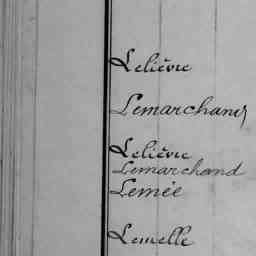 Lelièvre
Lemarchand
Lelièvre
Lemarchand
Lemée
Lemelle